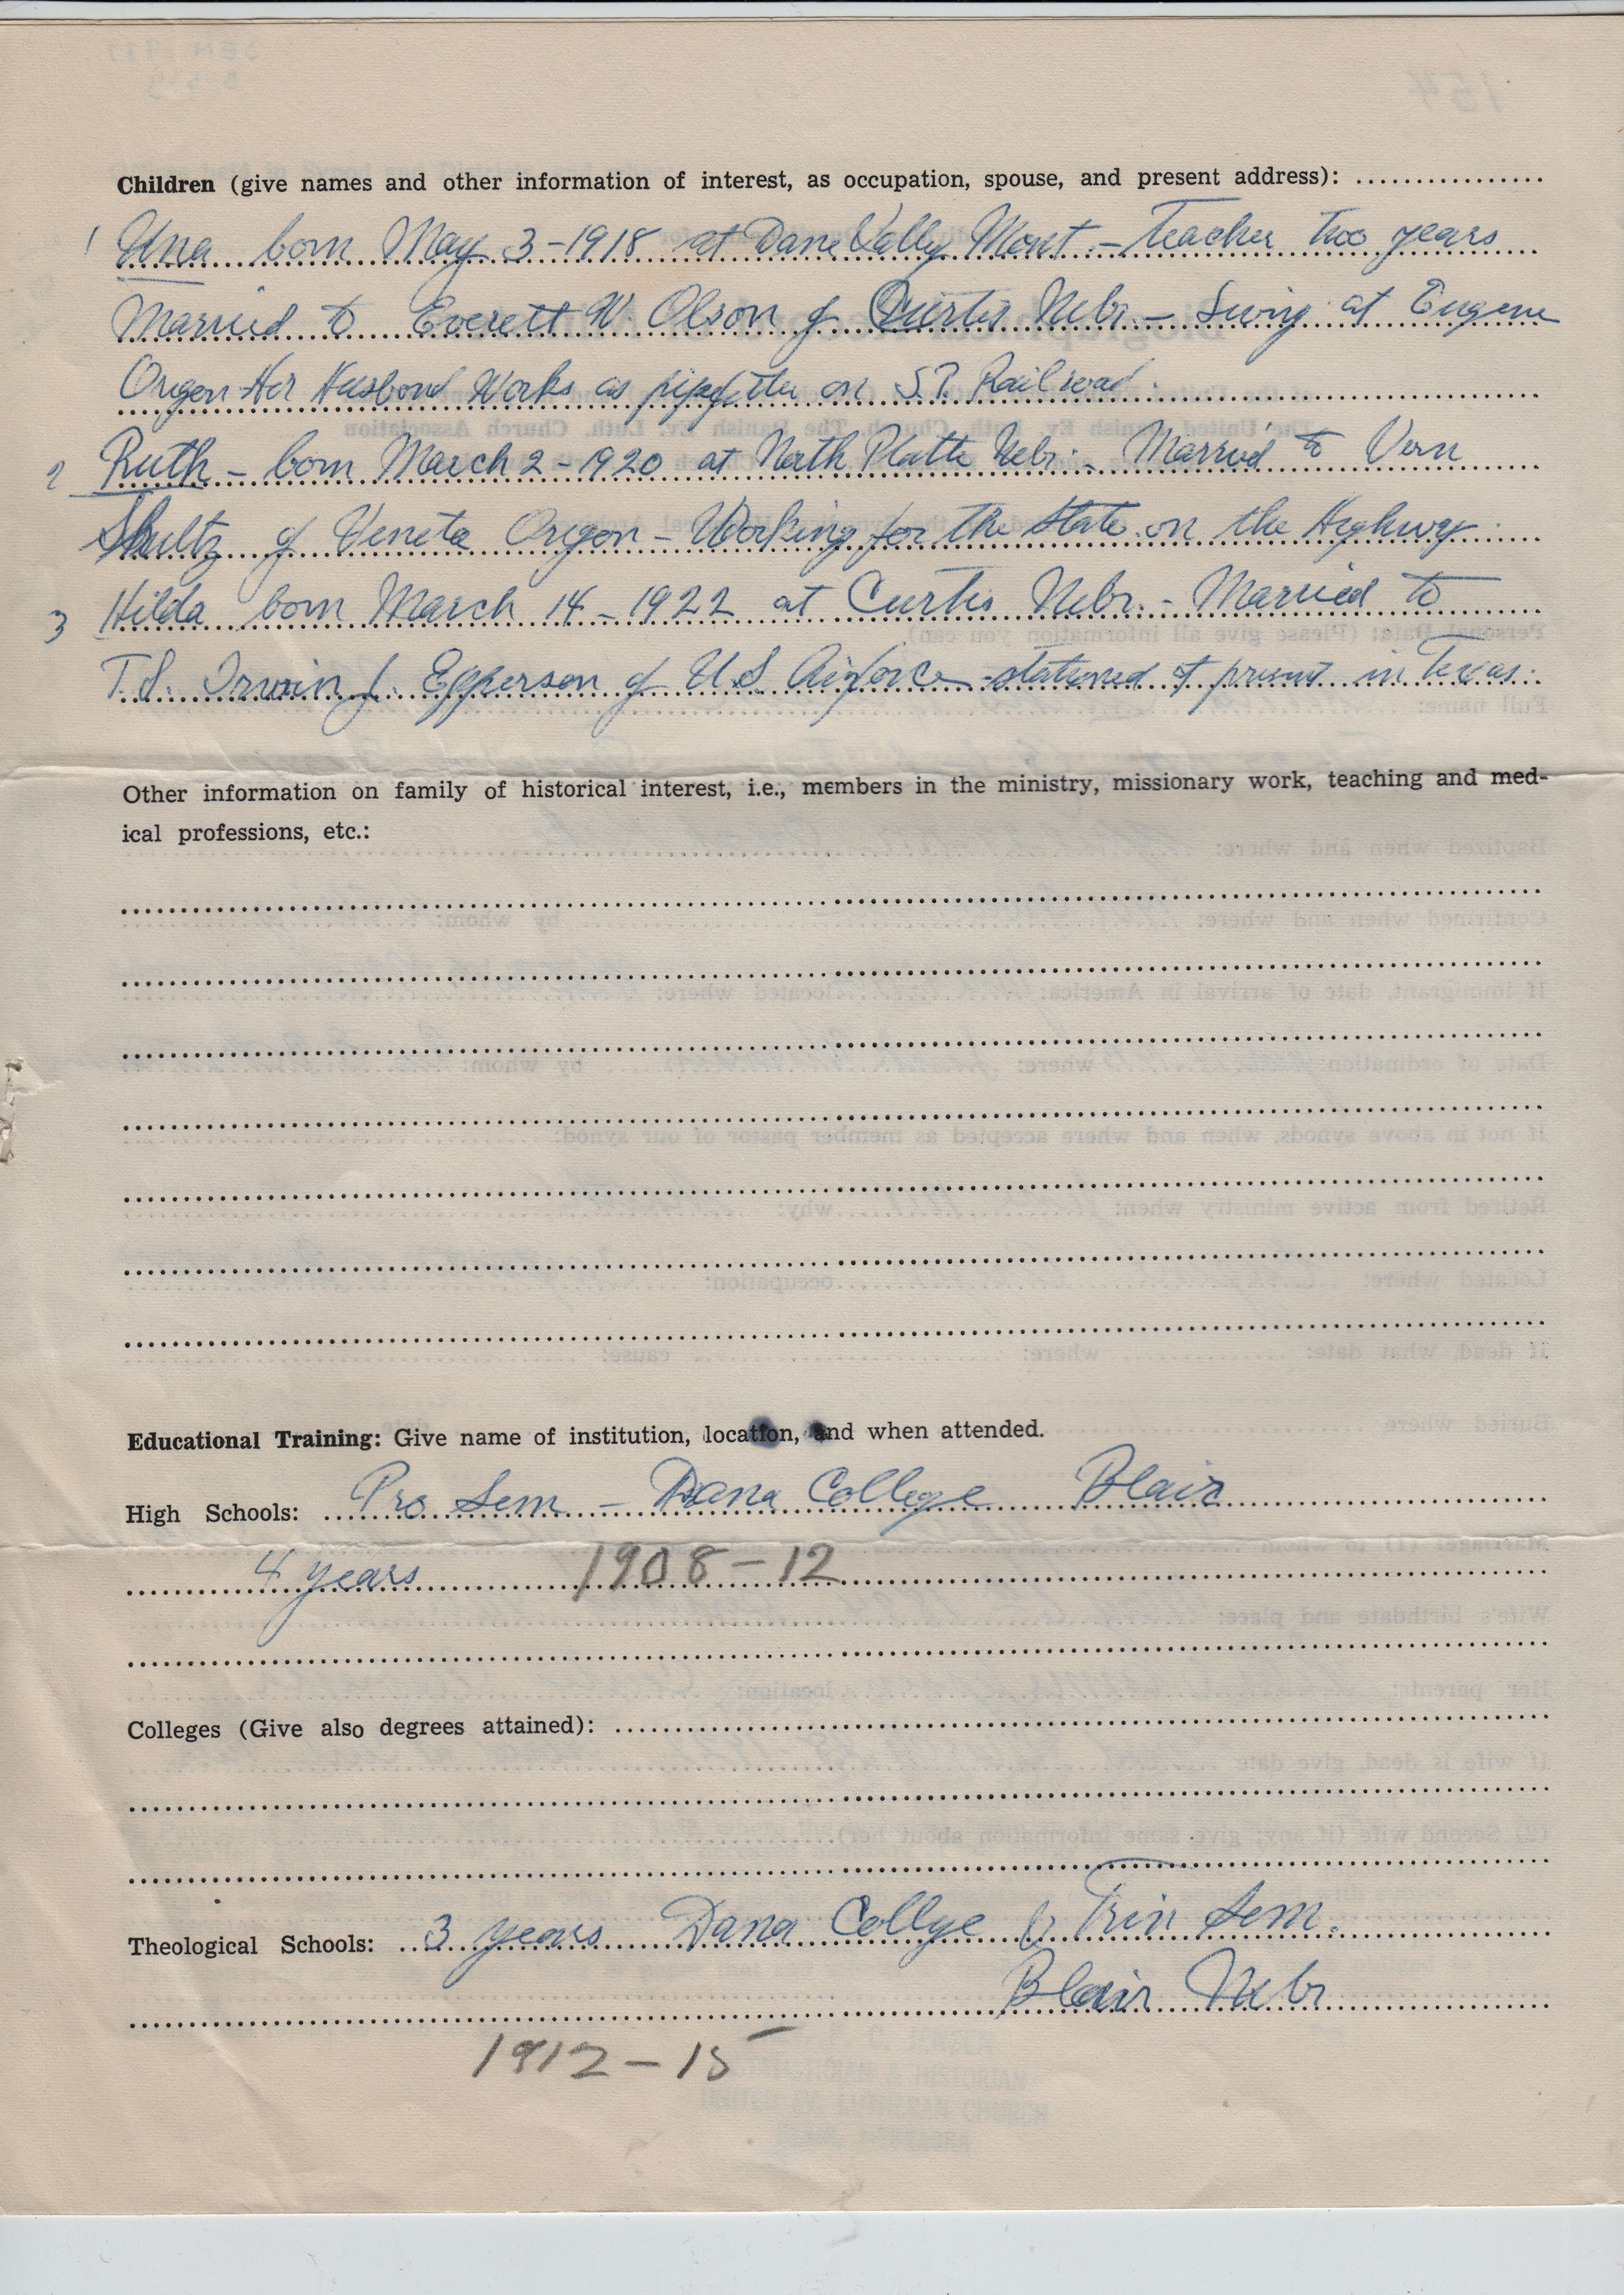 Children (give names and other information of interest, as occupation, spouse, and present address):
1 Una born May 3-1918 at Dane Vally Mont. - Teacher two years
Married to Everett W Olson of Curtis Nebr. - Living at Eugene
Oregon Her Husbond Works as pipefitter on S.P. Railroad.
2 Ruth - born March 2-1920 at North Platte Nebr. - Married to Vern
Shultz of Veneta Oregon - Working for the State on the Highwy.
3 Hilda born March 14-1922 at Curtis Nebr. - Married to
T.S. Irwin J. Epperson of U.S Airforce - stationed at present in Texas.
Other information on family of historical interest, i.e., members in the ministry, missionary work, teaching and med-
ical professions, etc.:
Educational Training: Give name of institution, location, and when attended.
High Schools: Pro Sem - Dana College Blair
4 years 1908-12
Colleges (Give also degrees attained):
Theological Schools: 3 years Dana Collge & Trin Sem.
Blair Nebr
1912-15